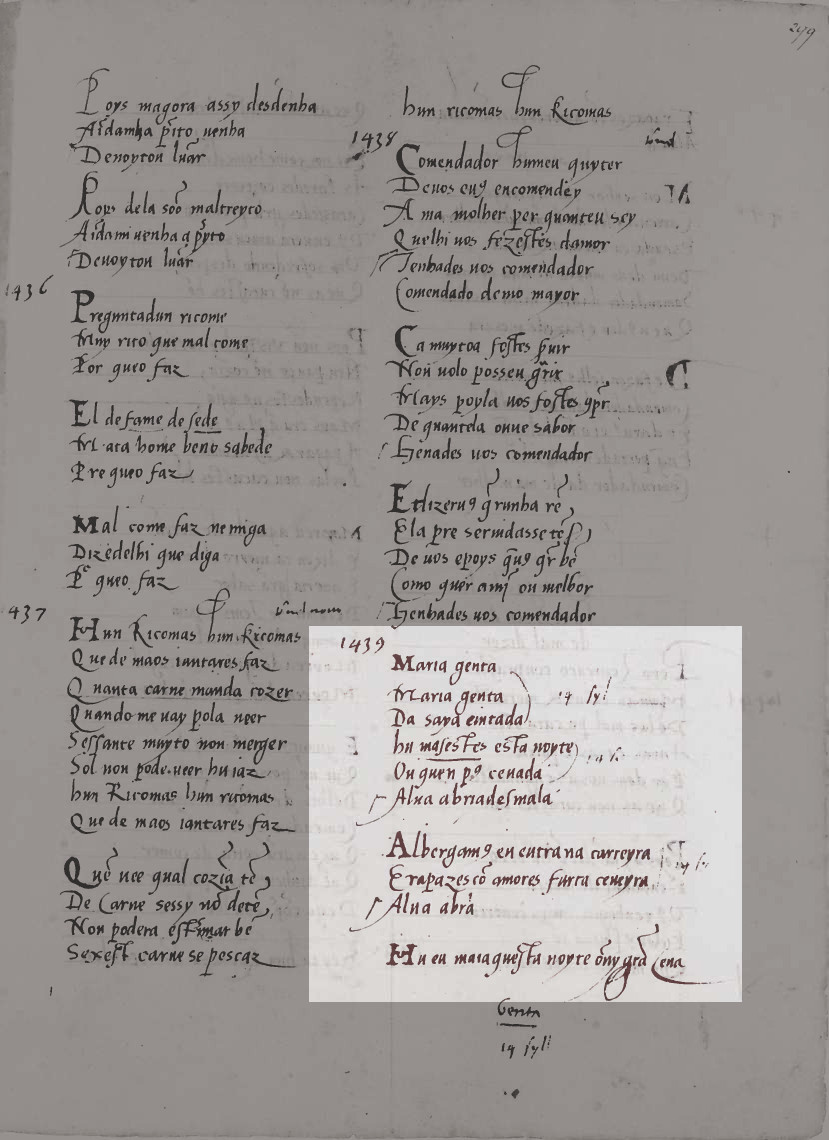 299
Poys magora assy desdenha
Aidamha pito uenha
Denoyton luar
Poys dela soo maltreyto
Aidami uenha a pyto
Denoyton luar
1436
Preguntadun ricome
Muy rico que mal come
Por queo faz
El de fame de sede
Mata home beno sabede
Pre queo faz
Mal come faz nemiga
Dizedelhi que diga
Pr queo faz
1437
Hun Ricomas hun Ricomas
Que de maos iantares faz
Quanta carne manda cozer
Quando me uay pola ueer
Sessante muyto non merger
Sol non pode ueer hu iaz
hun Ricomas hun ricomas
Que de maos iantares faz
Quē uee qual cozīa tē
De Carne sessy nō detē
Non podera estimar bē
Sexest carne se pescaz
hun ricomas hun Ricomas
1438
Comendador hu meu quyter
De uos eu9 encomendey
A ma molher per quanteu sey
Quelhi uos fezestes damor
Tenhades uos comendador
Comendado demo mayor
Ca muytoa fostes ꝑuir
Non uolo posseu grix
Mays poyla uos fostes 9pr
De quantela ouue sabor
Henades uos comendador
E dizeru9 grunha rē
Ela pre seruidasse tē
De uos e poys qu9 gr bē
Como quer amī ou melhor
Henhades uos comendador
1439
Maria genta
Maria genta
Da saya cintada
14 syl
hu masestes esta noyte
Ou quen p9 ceuada
Alua abriadesmala
Albergam9 eu eutra na carreyra
Erapazes cō amores furta ceueyra
Alua abra
Hu eu maiaquesta noyte ouuy grā cena
Genta
14 syll